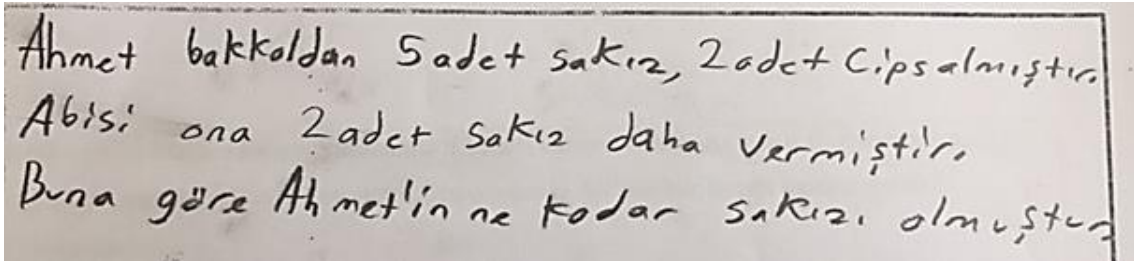 Ahmet bakkaldan 5 adet sakız, 2 adet Cips almıştır.
Abisi ona 2 adet sakız daha vermiştir.
Buna göre Ahmet'in ne kadar sakızı olmuştur